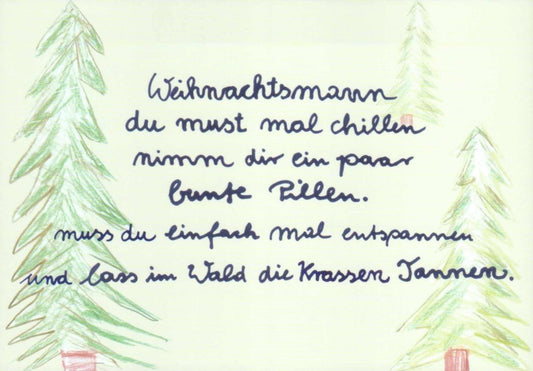 Weihnachtsmann
du must mal chillen
nimm dir ein paar
bunte Pillen.
muss du einfach mal entspannen
und lass im Wald die Krassen Tannen.